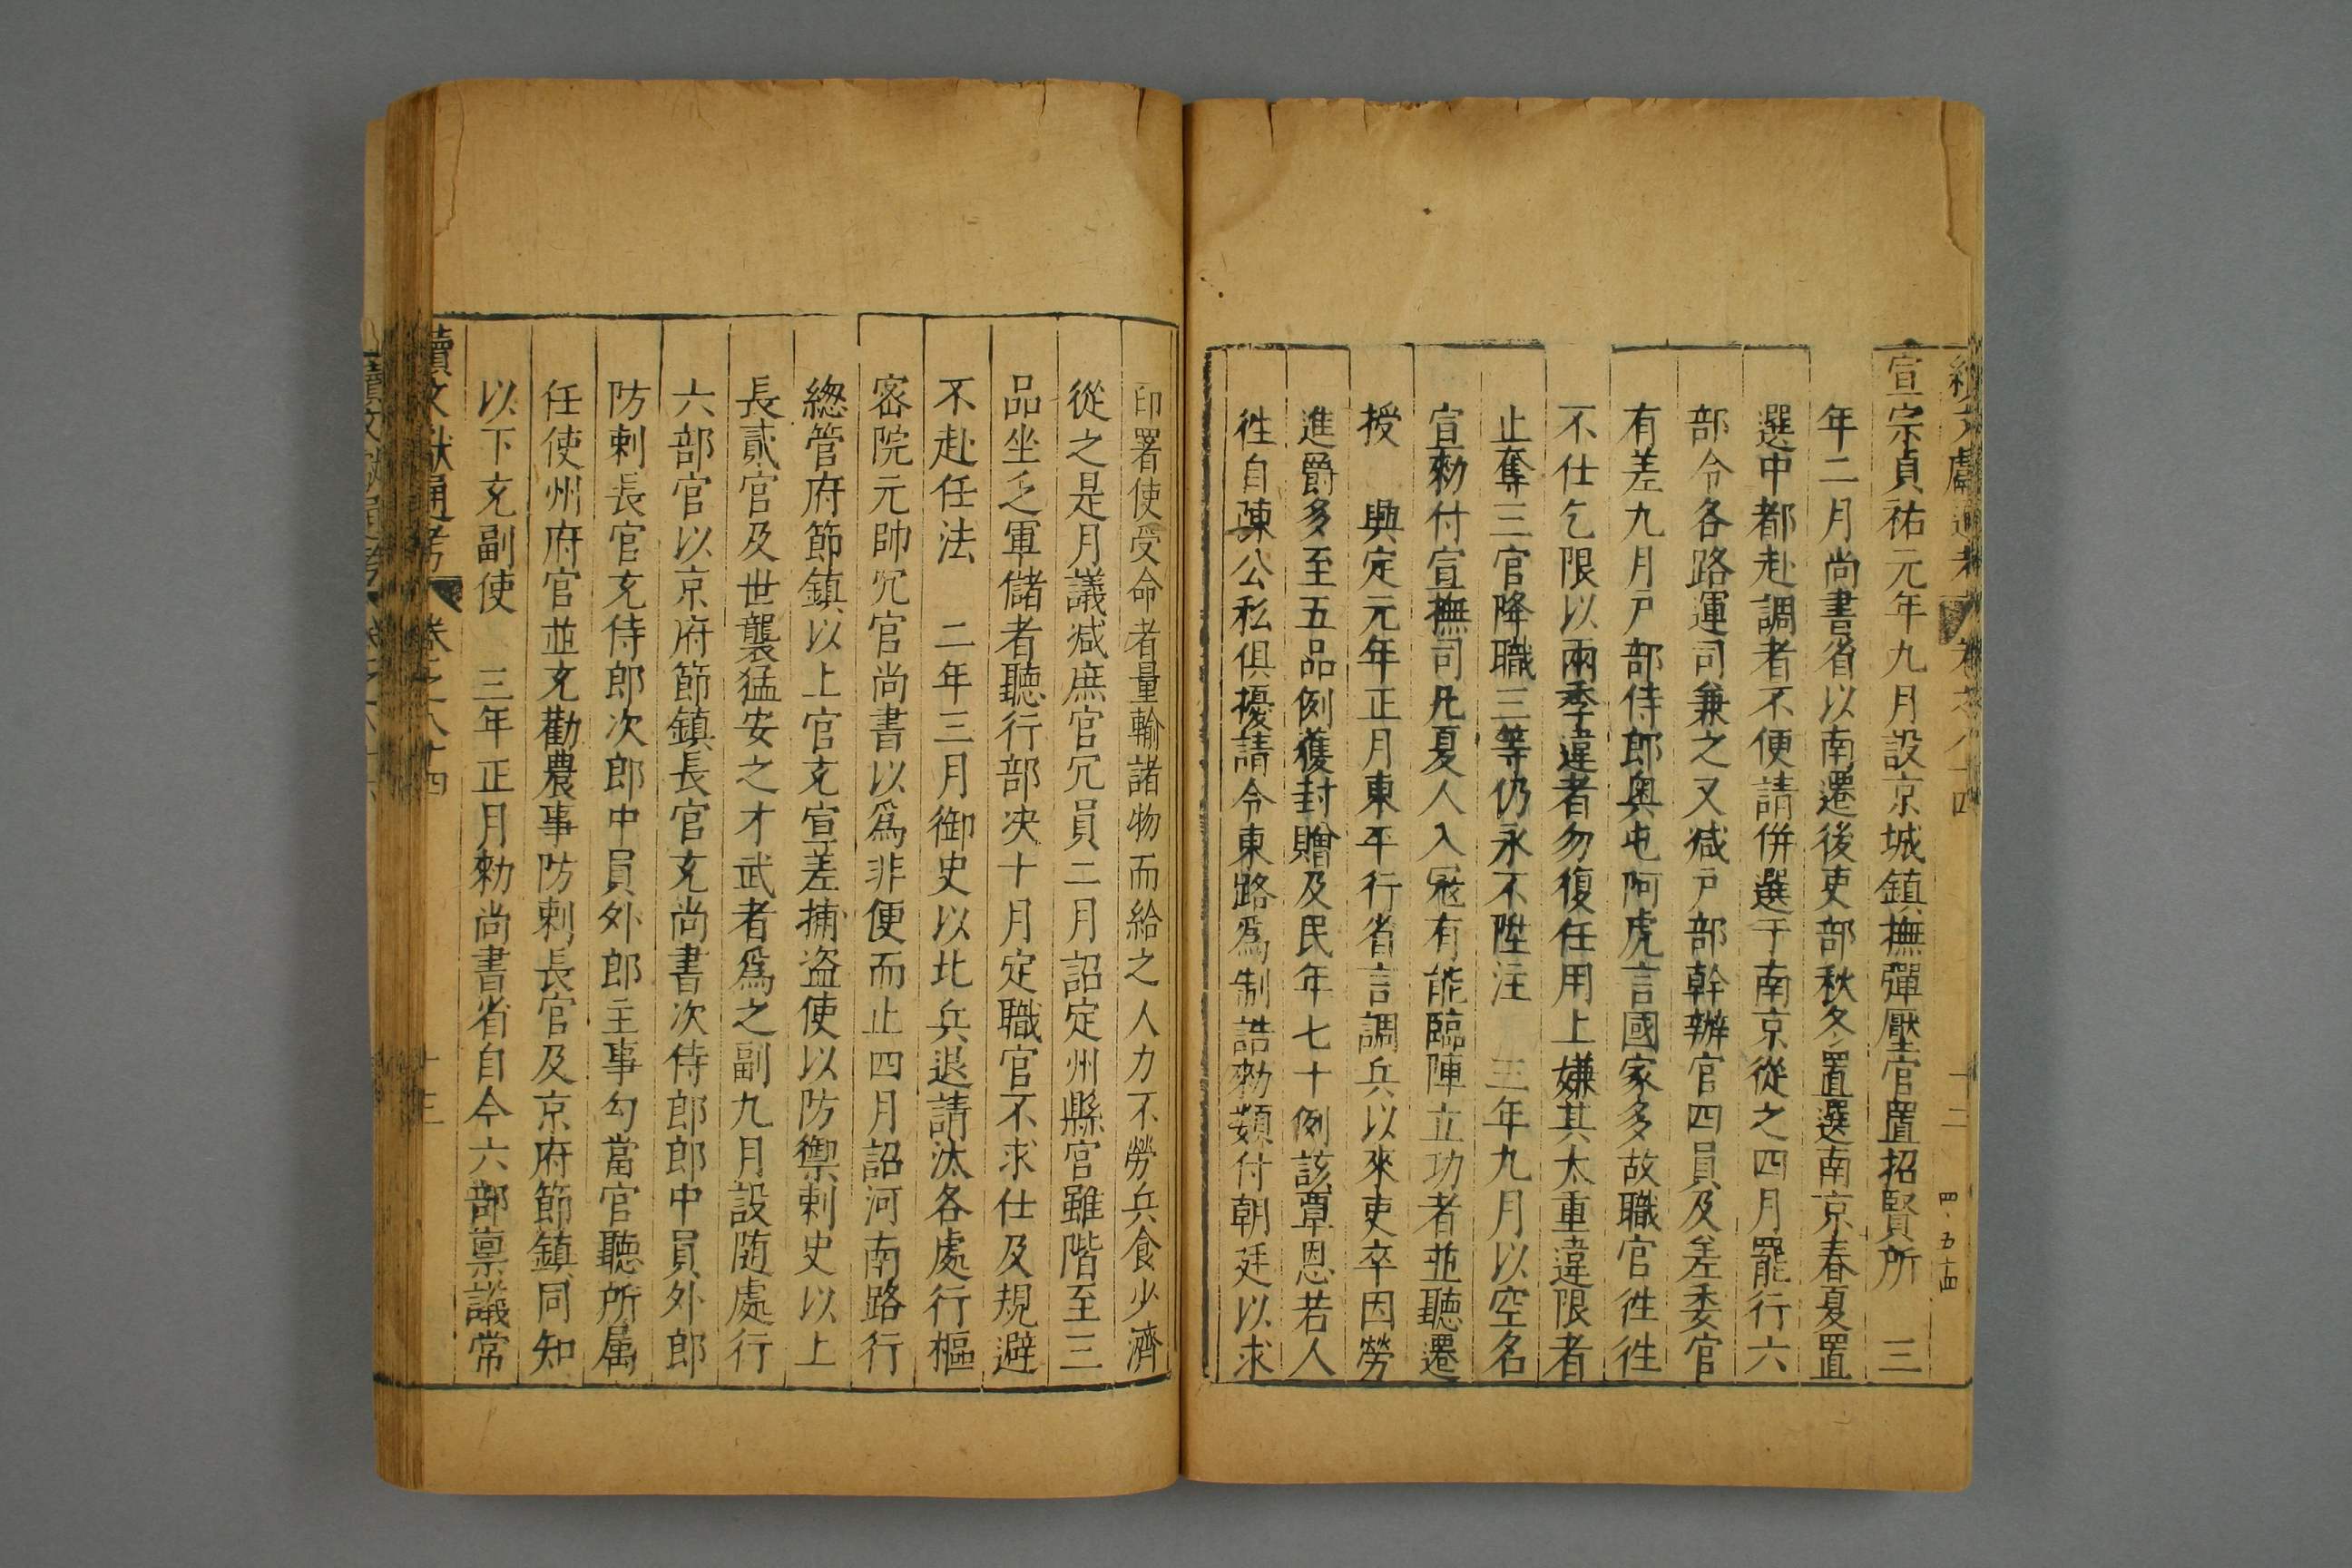 續文獻通考 卷之八十四 十二 四·五十四
宣宗貞祐元年九月設京城鎮撫彈壓官置招賢所 三
年二月尚書省以南遷後吏部秋冬置選南京春夏置
選中都赴調者不便請併選于南京從之四月罷行六
部令各路運司兼之又減戸部幹辦官四員及差委官
有差九月戸部侍郎奥屯阿虎言國家多故職官徃徃
不仕乞限以兩季違者勿復任用上嫌其太重違限者
止奪三官降職三等仍永不陞注 三年九月以空名
宣勑付宣撫司凡夏人入寇有能臨陣立功者並聽遷
授 興定元年正月東平行省言調兵以來吏卒因勞
進爵多至五品例獲封贈及民年七十例該覃恩若人
徃自陳公私俱擾請令東路爲制誥勑類付朝廷以求
印署使受命者量輸諸物而給之人力不勞兵食少濟
從之是月議減庶官冗員二月詔定州縣官雖階至三
品坐乏軍儲者聽行部决十月定職官不求仕及規避
不赴任法 二年三月御史以北兵退請汰各處行樞
密院元帥冗官尚書以爲非便而止四月詔河南路行
緫管府節鎮以上官充宣差捕盗使以防禦剌史以上
長貳官及世襲猛安之才武者爲之副九月設随處行
六部官以京府節鎮長官充尚書次侍郎郎中員外郎
防剌長官充侍郎次郎中員外郎主事勾當官聽所属
任使州府官並充勸農事防剌長官及京府節鎮同知
以下充副使 三年正月勑尚書省自今六部稟議常
續文獻通考 卷之八十四 十三